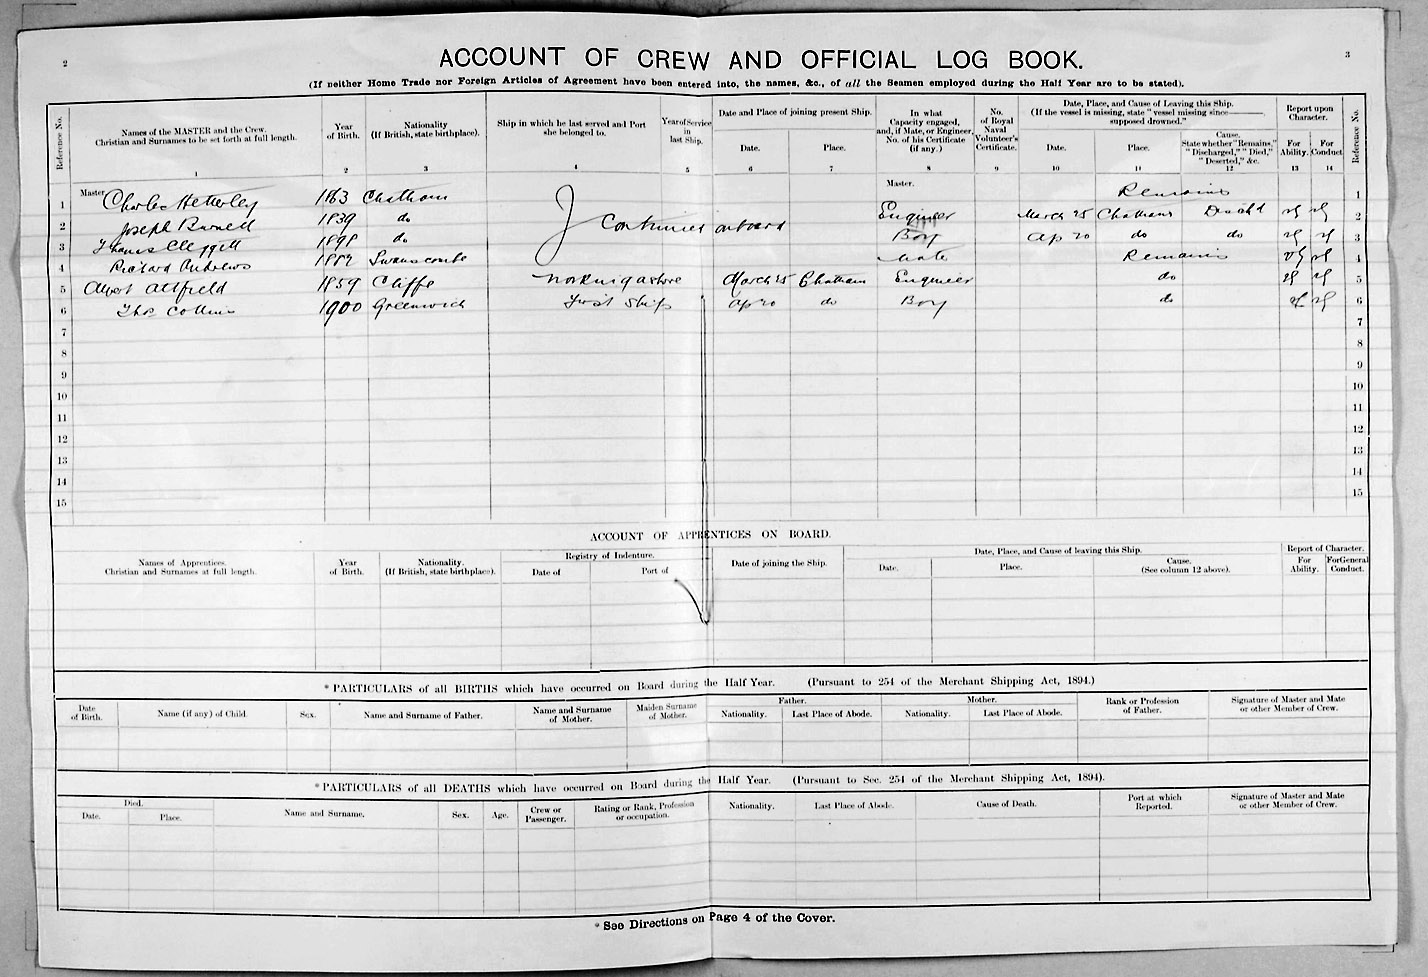 2
3
ACCOUNT OF CREW AND OFFICIAL LOG BOOK.
(If neither Home Trade nor Foreign Articles of Agreement have been entered into, the names, &c., of all the Seamen employed during the Half Year are to be stated).
Reference No. Names of the MASTER and the Crew. Christian and Surnames to be set forth at full length. Year of Birth. Nationality (If British, state birthplace). Ship in which he last served and Port she belonged to. Year of Service in last Ship. Date and Place of joining present Ship. Date. Place. In what Capacity engaged, and, if Mate, or Engineer, No. of his Certificate (if any.) No. of Royal Naval Volunteer's Certificate. Date, Place, and Cause of Leaving this Ship. (If the vessel is missing, state "vessel missing since———, supposed drowned." Date. Place. Cause. State whether "Remains," "Discharged," "Died," "Deserted," &c. Report upon Character. For Ability. For Conduct Reference No.
1 2 3 4 5 6 7 8 9 10 11 12 13 14
1 Master Charles Hetherley 1863 Chatham Master. Remains 1
2 Joseph Burnell 1839 do Continues onboard Engineer March 25 Chatham Disch'd vg vg 2
3 Thomas Cleggett 1898 do Boy Ap 20 do do vg vg 3
4 Richard Andrews 1882 Swanscombe Mate Remains vg vg 4
5 Albert Attfield 1859 Cliffe Working ashore March 25 Chatham Engineer do vg vg 5
6 Thos Collins 1900 Greenwich First Ship Ap 20 do Boy do vg vg 6
7 7
8 8
9 9
10 10
11 11
12 12
13 13
14 14
15 15
ACCOUNT OF APPRENTICES ON BOARD.
Names of Apprentices, Christian and Surnames at full length. Year of Birth. Nationality. (If British, state birthplace). Registry of Indenture. Date of Port of Date of joining the Ship. Date, Place, and Cause of leaving this Ship. Date. Place. Cause. (See column 12 above). Report of Character. For Ability. For General Conduct.
* PARTICULARS of all BIRTHS which have occurred on Board during the Half Year. (Pursuant to 254 of the Merchant Shipping Act, 1894.)
Date of Birth. Name (if any) of Child. Sex. Name and Surname of Father. Name and Surname of Mother. Maiden Surname of Mother. Father. Nationality. Last Place of Abode. Mother. Nationality. Last Place of Abode. Rank or Profession of Father. Signature of Master and Mate or other Member of Crew.
* PARTICULARS of all DEATHS which have occurred on Board during the Half Year. (Pursuant to Sec. 254 of the Merchant Shipping Act, 1894).
Died. Date. Place. Name and Surname. Sex. Age. Crew or Passenger. Rating or Rank, Profession or occupation. Nationality. Last Place of Abode. Cause of Death. Port at which Reported. Signature of Master and Mate or other Member of Crew.
* See Directions on Page 4 of the Cover.